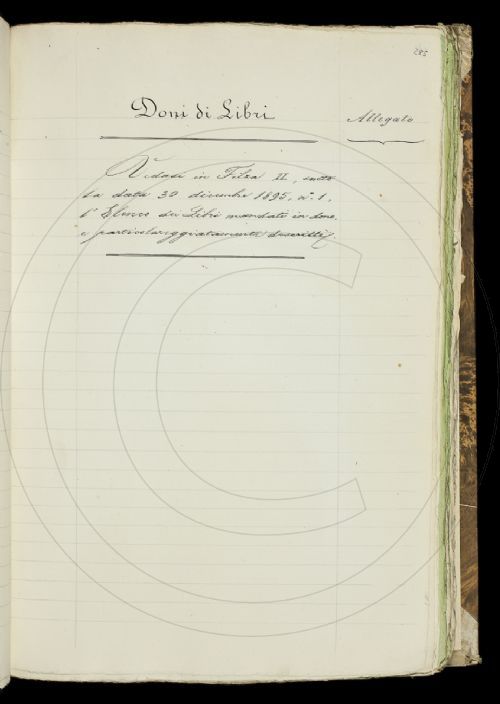 285
Doni di Libri
Allegato
Vedasi in Filza II, sotto
la data 30 dicembre 1895, n.° 1,
l'Elenco dei Libri mandati in dono
e particolareggiatamente descritti